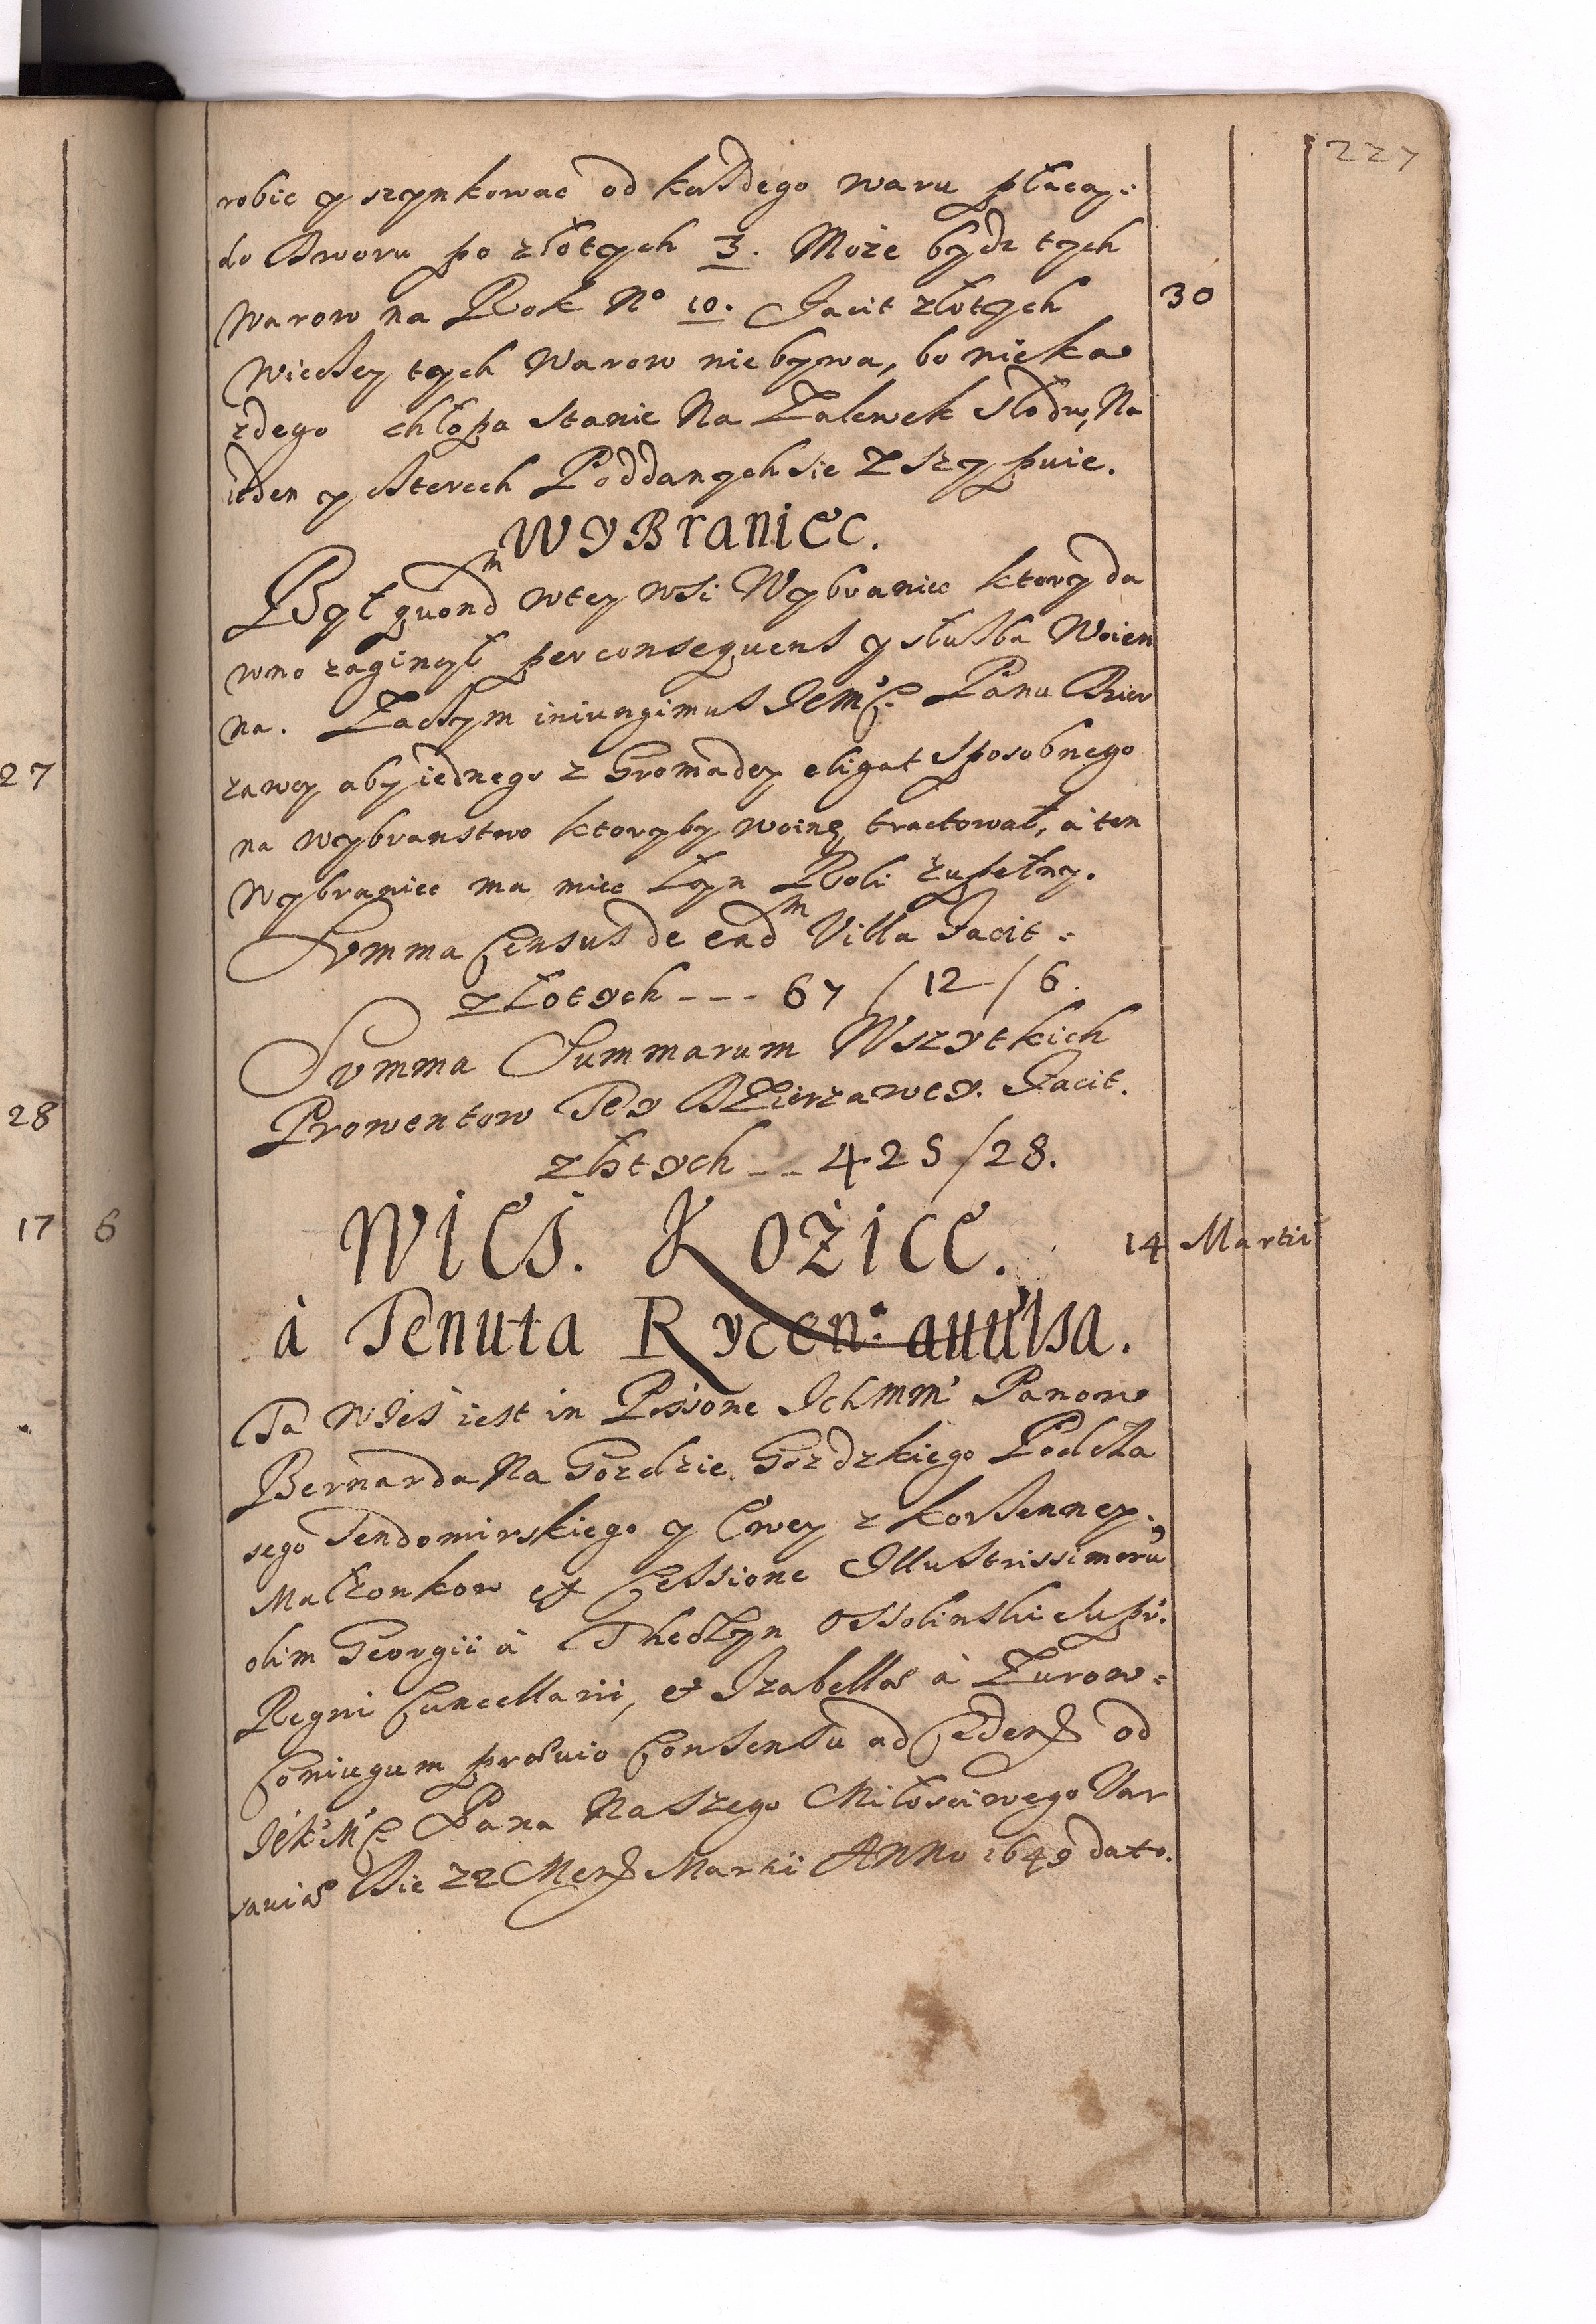 227
robic y szynkowac od kaszdego waru płacą:
do dworu po złotych 3. Może bydz tych
warow na Rok No 10. Facit złotych 30
Wieczey tych Warow nie bywa, bo nieka
zdego chłopa stanie Na Zalewek słodu, Na
ieden y czterech Poddanych sie Zszypuie.
WyBraniec.
Był quondm wtey wsi Wybraniec ktory da
wno zaginął per consequens y służba Woien
na. Zaczym iniungimus Jemci Panu Dzier
zawcy aby iednego z Gromady eligat sposobnego
na wybranstwo ktoryby woinę tractował, a ten
Wybraniec ma miec Łan Roli zupełny.
Summa Census de eadm Villa Facit:
złotych --- 67 / 12 / 6.
Summa Summarum Wszytkich
Prowentow Tey Dzierzawey. Facit.
złotych -- 425 / 28.
Wieś. Kożice. 14 Martii
à Tenuta Rycen: auulsa.
Ta Wies iest in Possione Ichmm Panow
Bernarda Na Gozdzie Gozdzkiego Podcza
sego Sendomirskiego y Ewey z Korzenney.
Małzonkow ex Cessione Illustrissimorũ
olim Georgii à Thęczyn Ossolinski Supr:
Regni Cancellarii, et Izabellæ à Zurow:
Coniugum præuio Consensu ad Cedend od
JeKMci Pana Naszego Miłosciwego Var
sauiæ Die 22 Mens Martii Anno 1649 dato.
27
28
17 6